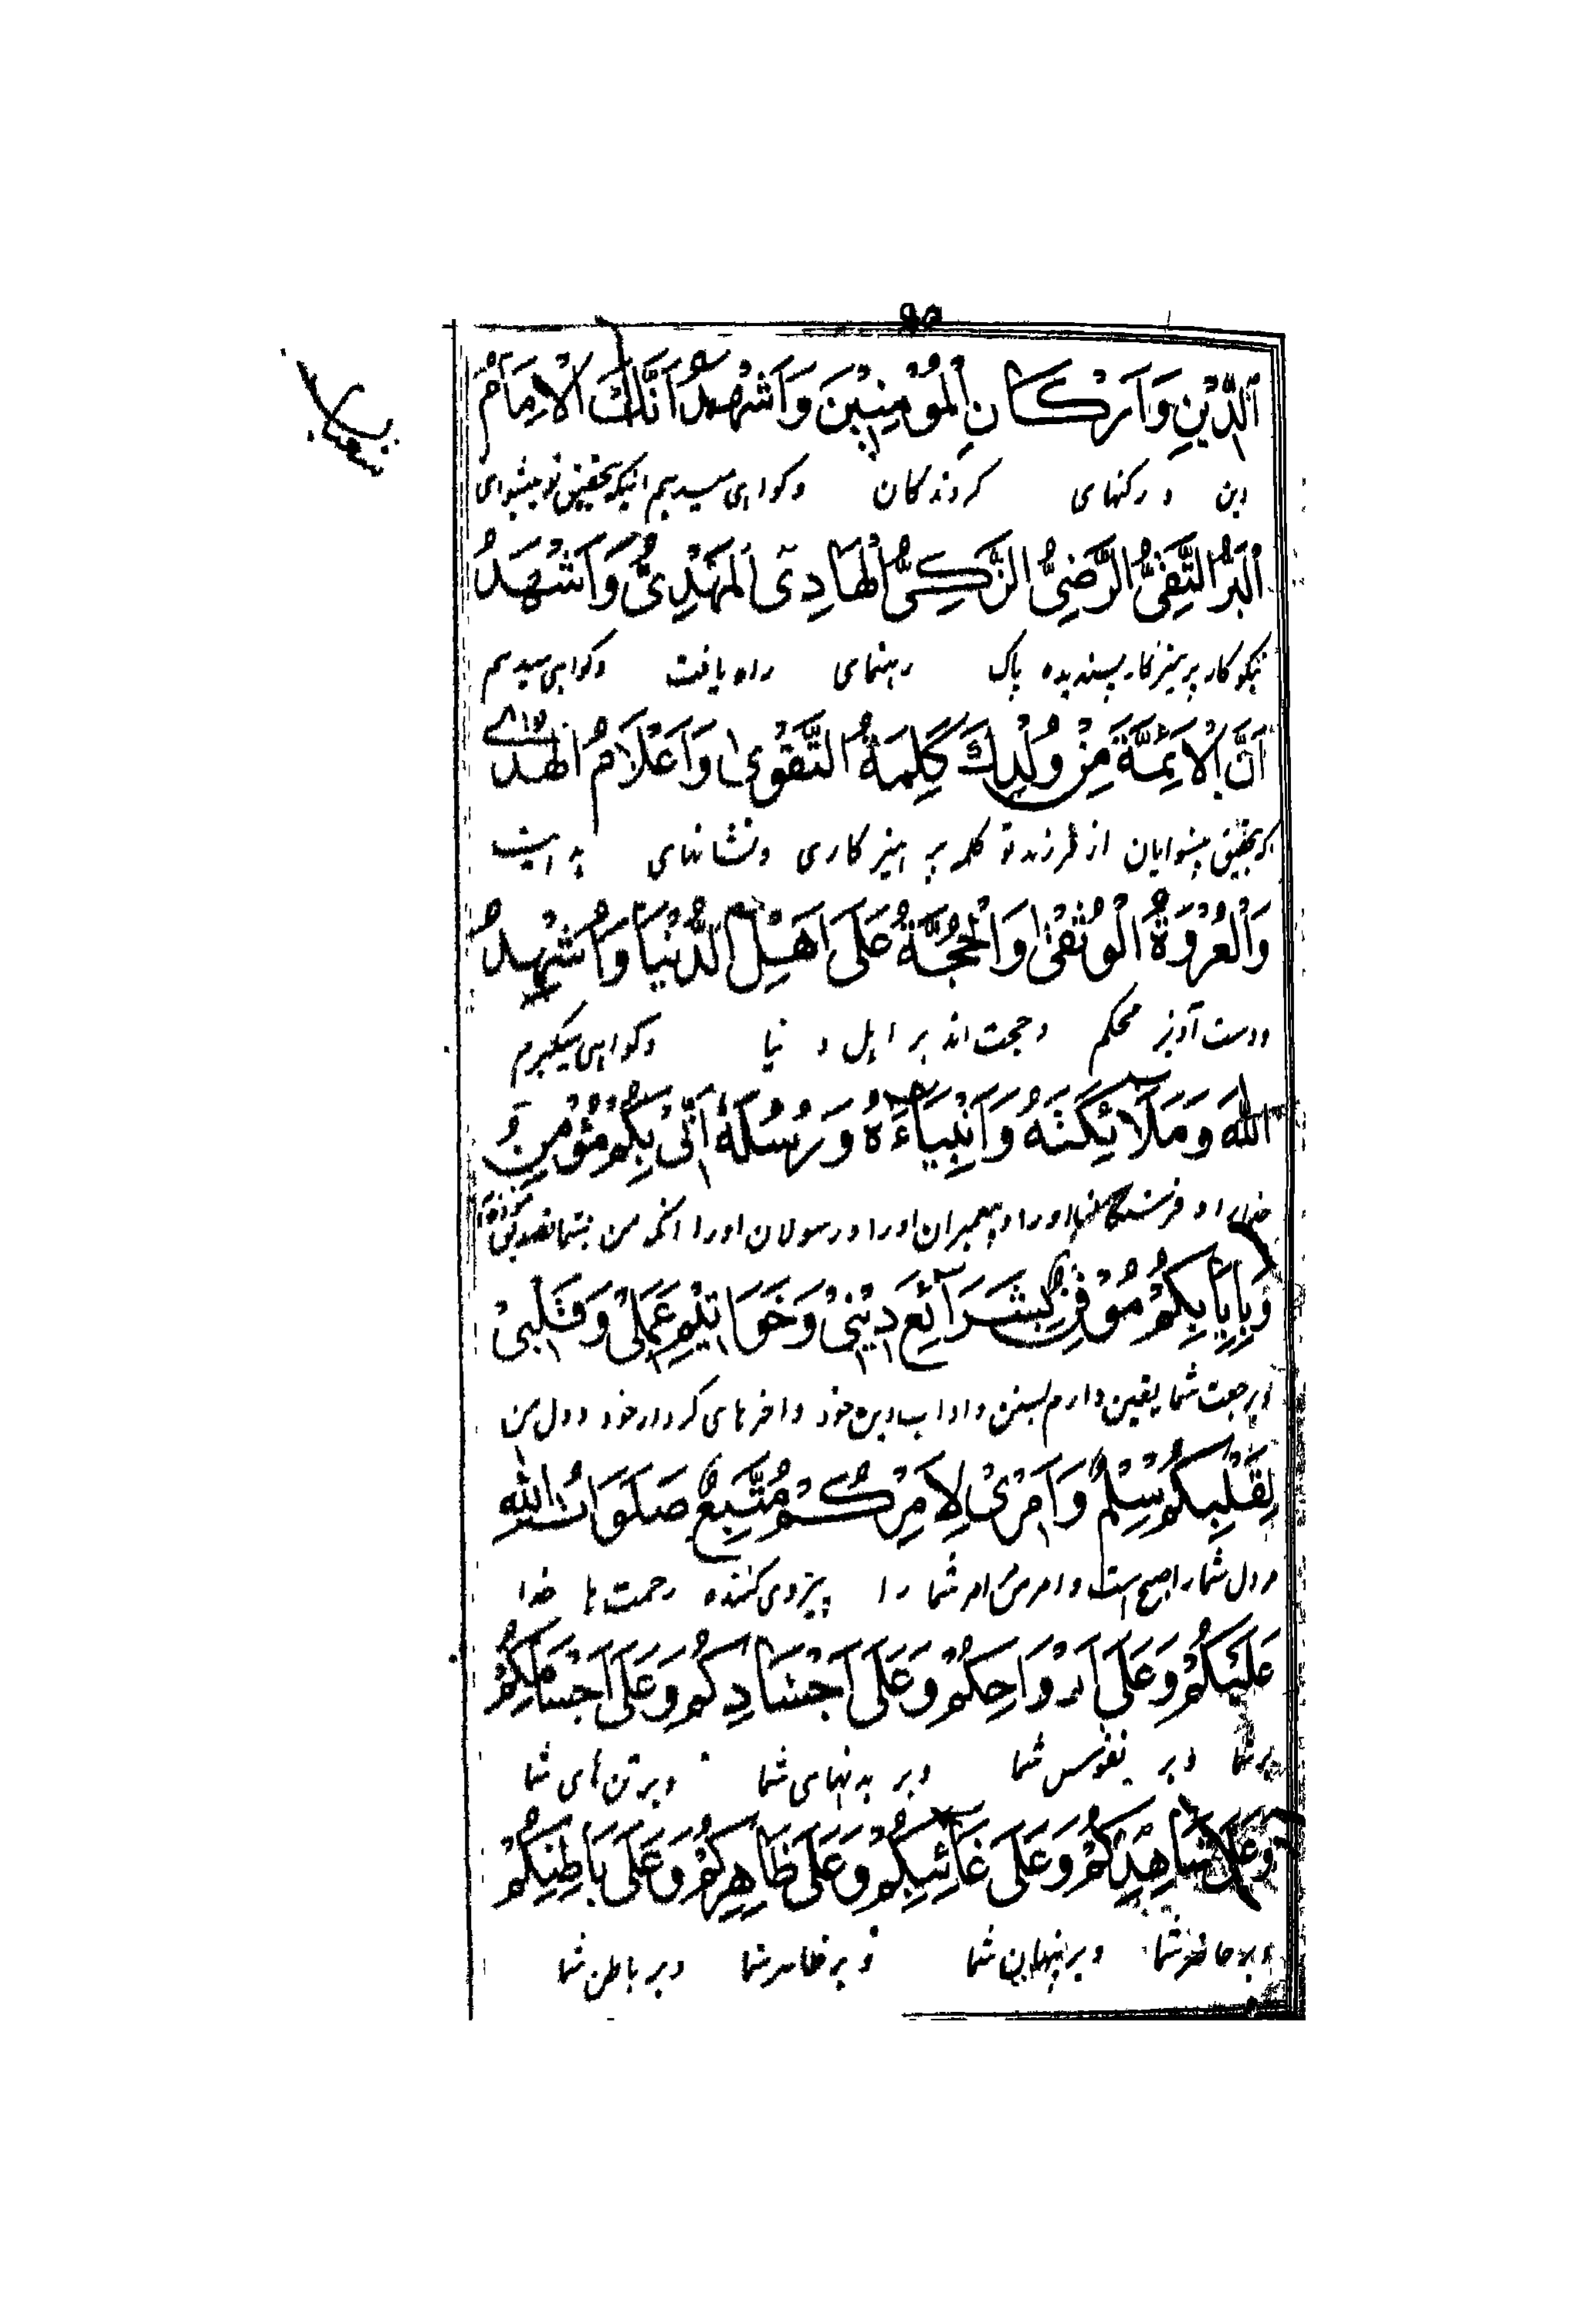 اَلدِّيْنِ وَاَرْكَانِ الْمُؤْمِنِيْنَ وَاَشْهَدُ اَنَّكَ الْاِمَامُ
دین و رکنهای گروندگان و گواهی میدهم اینکه بتحقیق تو پیشوای
اَلْبَرُّ التَّقِیُّ الرَّضِیُّ الزَّكِیُّ الْهَادِی الْمَهْدِیُّ وَاَشْهَدُ
نیکوکار پرهیزکار پسندیده پاک رهنمای راه یافت وگواهی میدهم
اَنَّ الْاَئِمَّةَ مِنْ وُلْدِكَ كَلِمَةُ التَّقْوٰی وَاَعْلَامُ الْهُدٰے
که بتحقیق پیشوایان از فرزند تو کلمه پرهیزکاری ونشانهای هدایت
وَالْعُرْوَةُ الْوُثْقٰی وَالْحُجَّةُ عَلٰی اَهْلِ الدُّنْيَا وَاُشْهِدُ
ودست آویز محکم وحجت اند بر اهل دنیا وگواهی میگیرم
اللهَ وَمَلَآئِكَتَهُ وَاَنْبِيَآءَهُ وَرُسُلَهُ اَنِّیْ بِكُمْ مُؤْمِنٌ
خدا را و فرشتگانها اورا وپیغمبران اورا ورسولان اورا انکه من بشما
وَبِاِيَابِكُمْ مُوْقِنٌ بِشَرَآئِعِ دِيْنِیْ وَخَوَاتِيْمِ عَمَلِیْ وَقَلْبِیْ
وبرجعت شما یقین دارم بسنن واداب دین خود واخرهای کردار خود ودل من
لِقَلْبِكُمْ سِلْمٌ وَاَمْرِیْ لِاَمْرِكُمْ مُتَّبِعٌ صَلَوَاتُ اللهِ
مر دل شمارا صلح است وامر من امر شما را پیروی کننده رحمت ها خدا
عَلَيْكُمْ وَعَلٰی اَرْوَاحِكُمْ وَعَلٰی اَجْسَادِكُمْ وَعَلٰی اَجْسَامِكُمْ
برشما وبر نفوس شما وبر بدنهای شما وبر تن های شما
وَعَلٰی شَاهِدِكُمْ وَعَلٰی غَآئِبِكُمْ وَعَلٰی ظَاهِرِكُمْ وَعَلٰی بَاطِنِكُمْ
وبر حاضر شما وبر پنهان شما وبر ظاهر شما وبر باطن شما